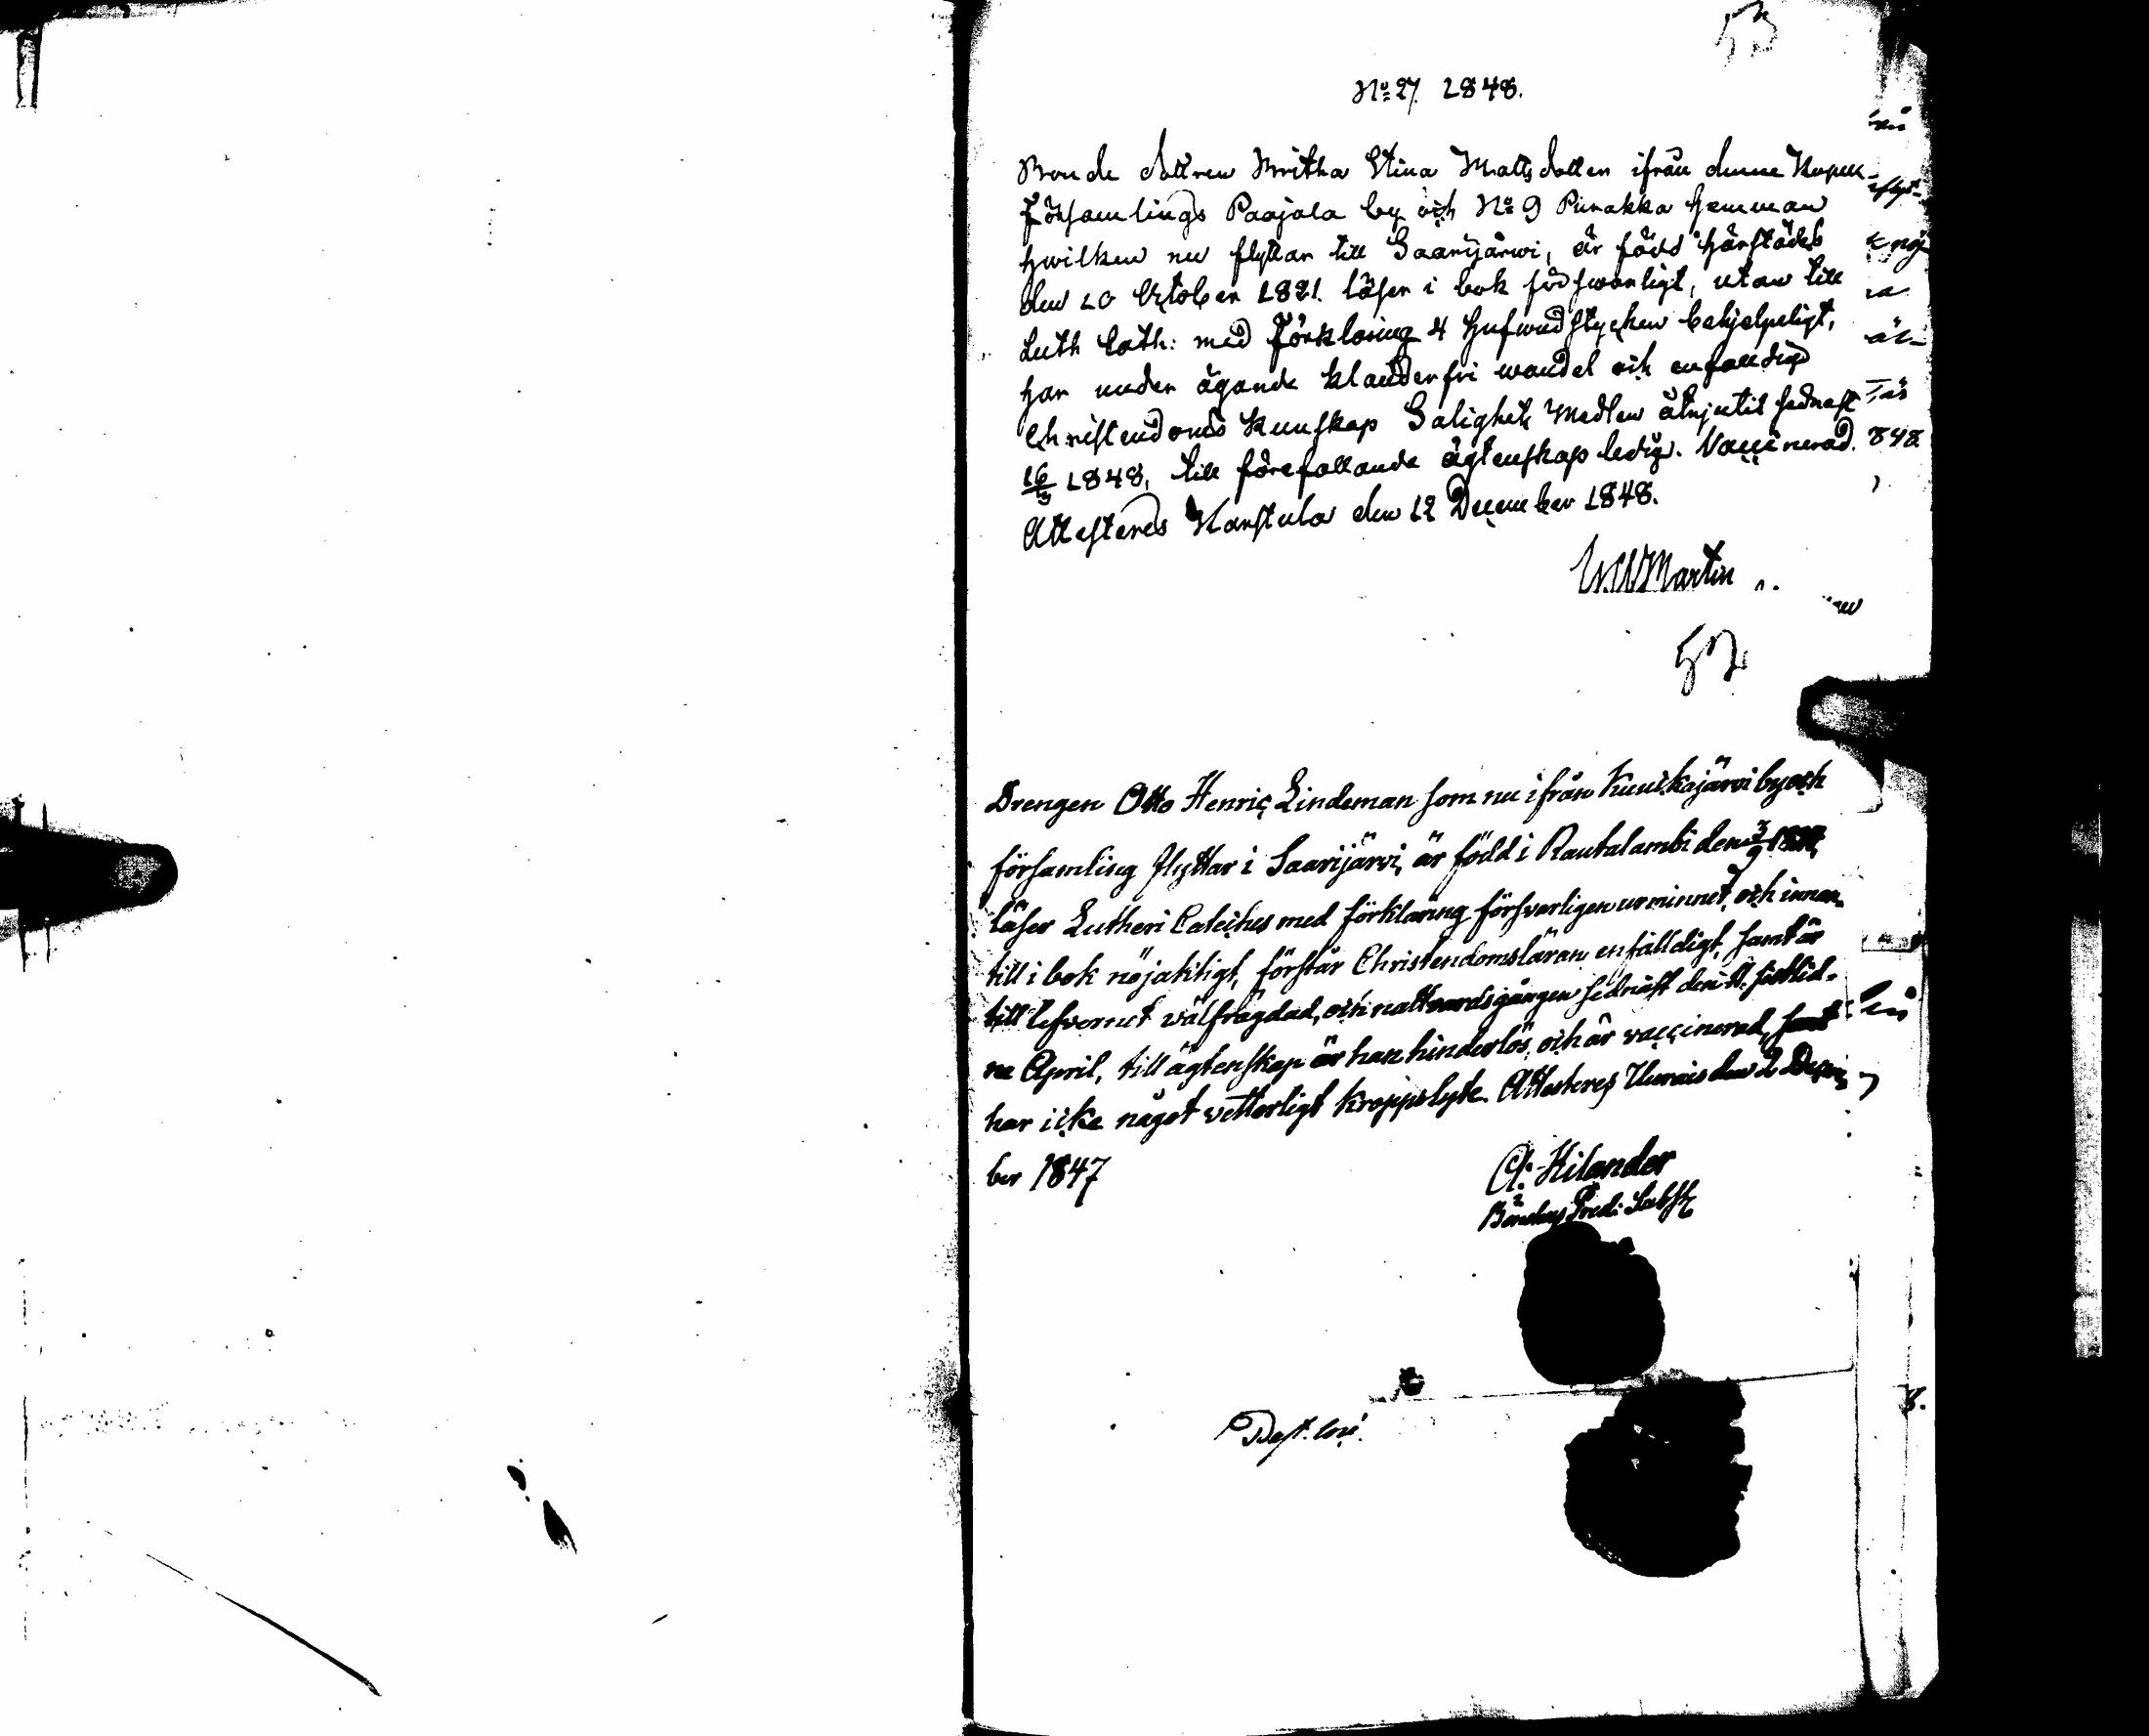 53
No 27. 1848.
Bonde dottren Britha Stina Mattsdotter ifrån denne Kapell
församlings Paajala by och No 9 Purakka hemman
hwilken nu flyttar till Saarijärwi, är född härstädes
den 20 October 1821. läser i bok förswarligt, utan till
Luth Cath: med förklaring 4 hufwudstycken behjelpeligt,
har under ägande klanderfri wandel och enfaldig
Christendoms kunskap Salighets Medlen åtnjutit sednast
1848, till förefallande ägtenskap ledig. Vaccinerad.
Attesteras Karstula den 12 December 1848.
Martin
52
Drengen Otto Henric Lindeman som nu ifrån Kuukajärvi by och
församling flyttar i Saarijärvi, är född i Rautalambi den 3/9
läser Lutheri Cateches med förklaring försvarligen ur minnet, och innan
till i bok nöjaktigt, förstår Christendomsläran enfalldigt, samt är
till lefvernet välfrägdad, och nattvardsgången sednast den sistlid-
ne April, till ägtenskap är han hinderlös, och är vaccinerad, samt
har icke något vetterligt kroppslyte. Attesteres Uurais den 2 Decem
ber 1847
A. Kilander
Pred: